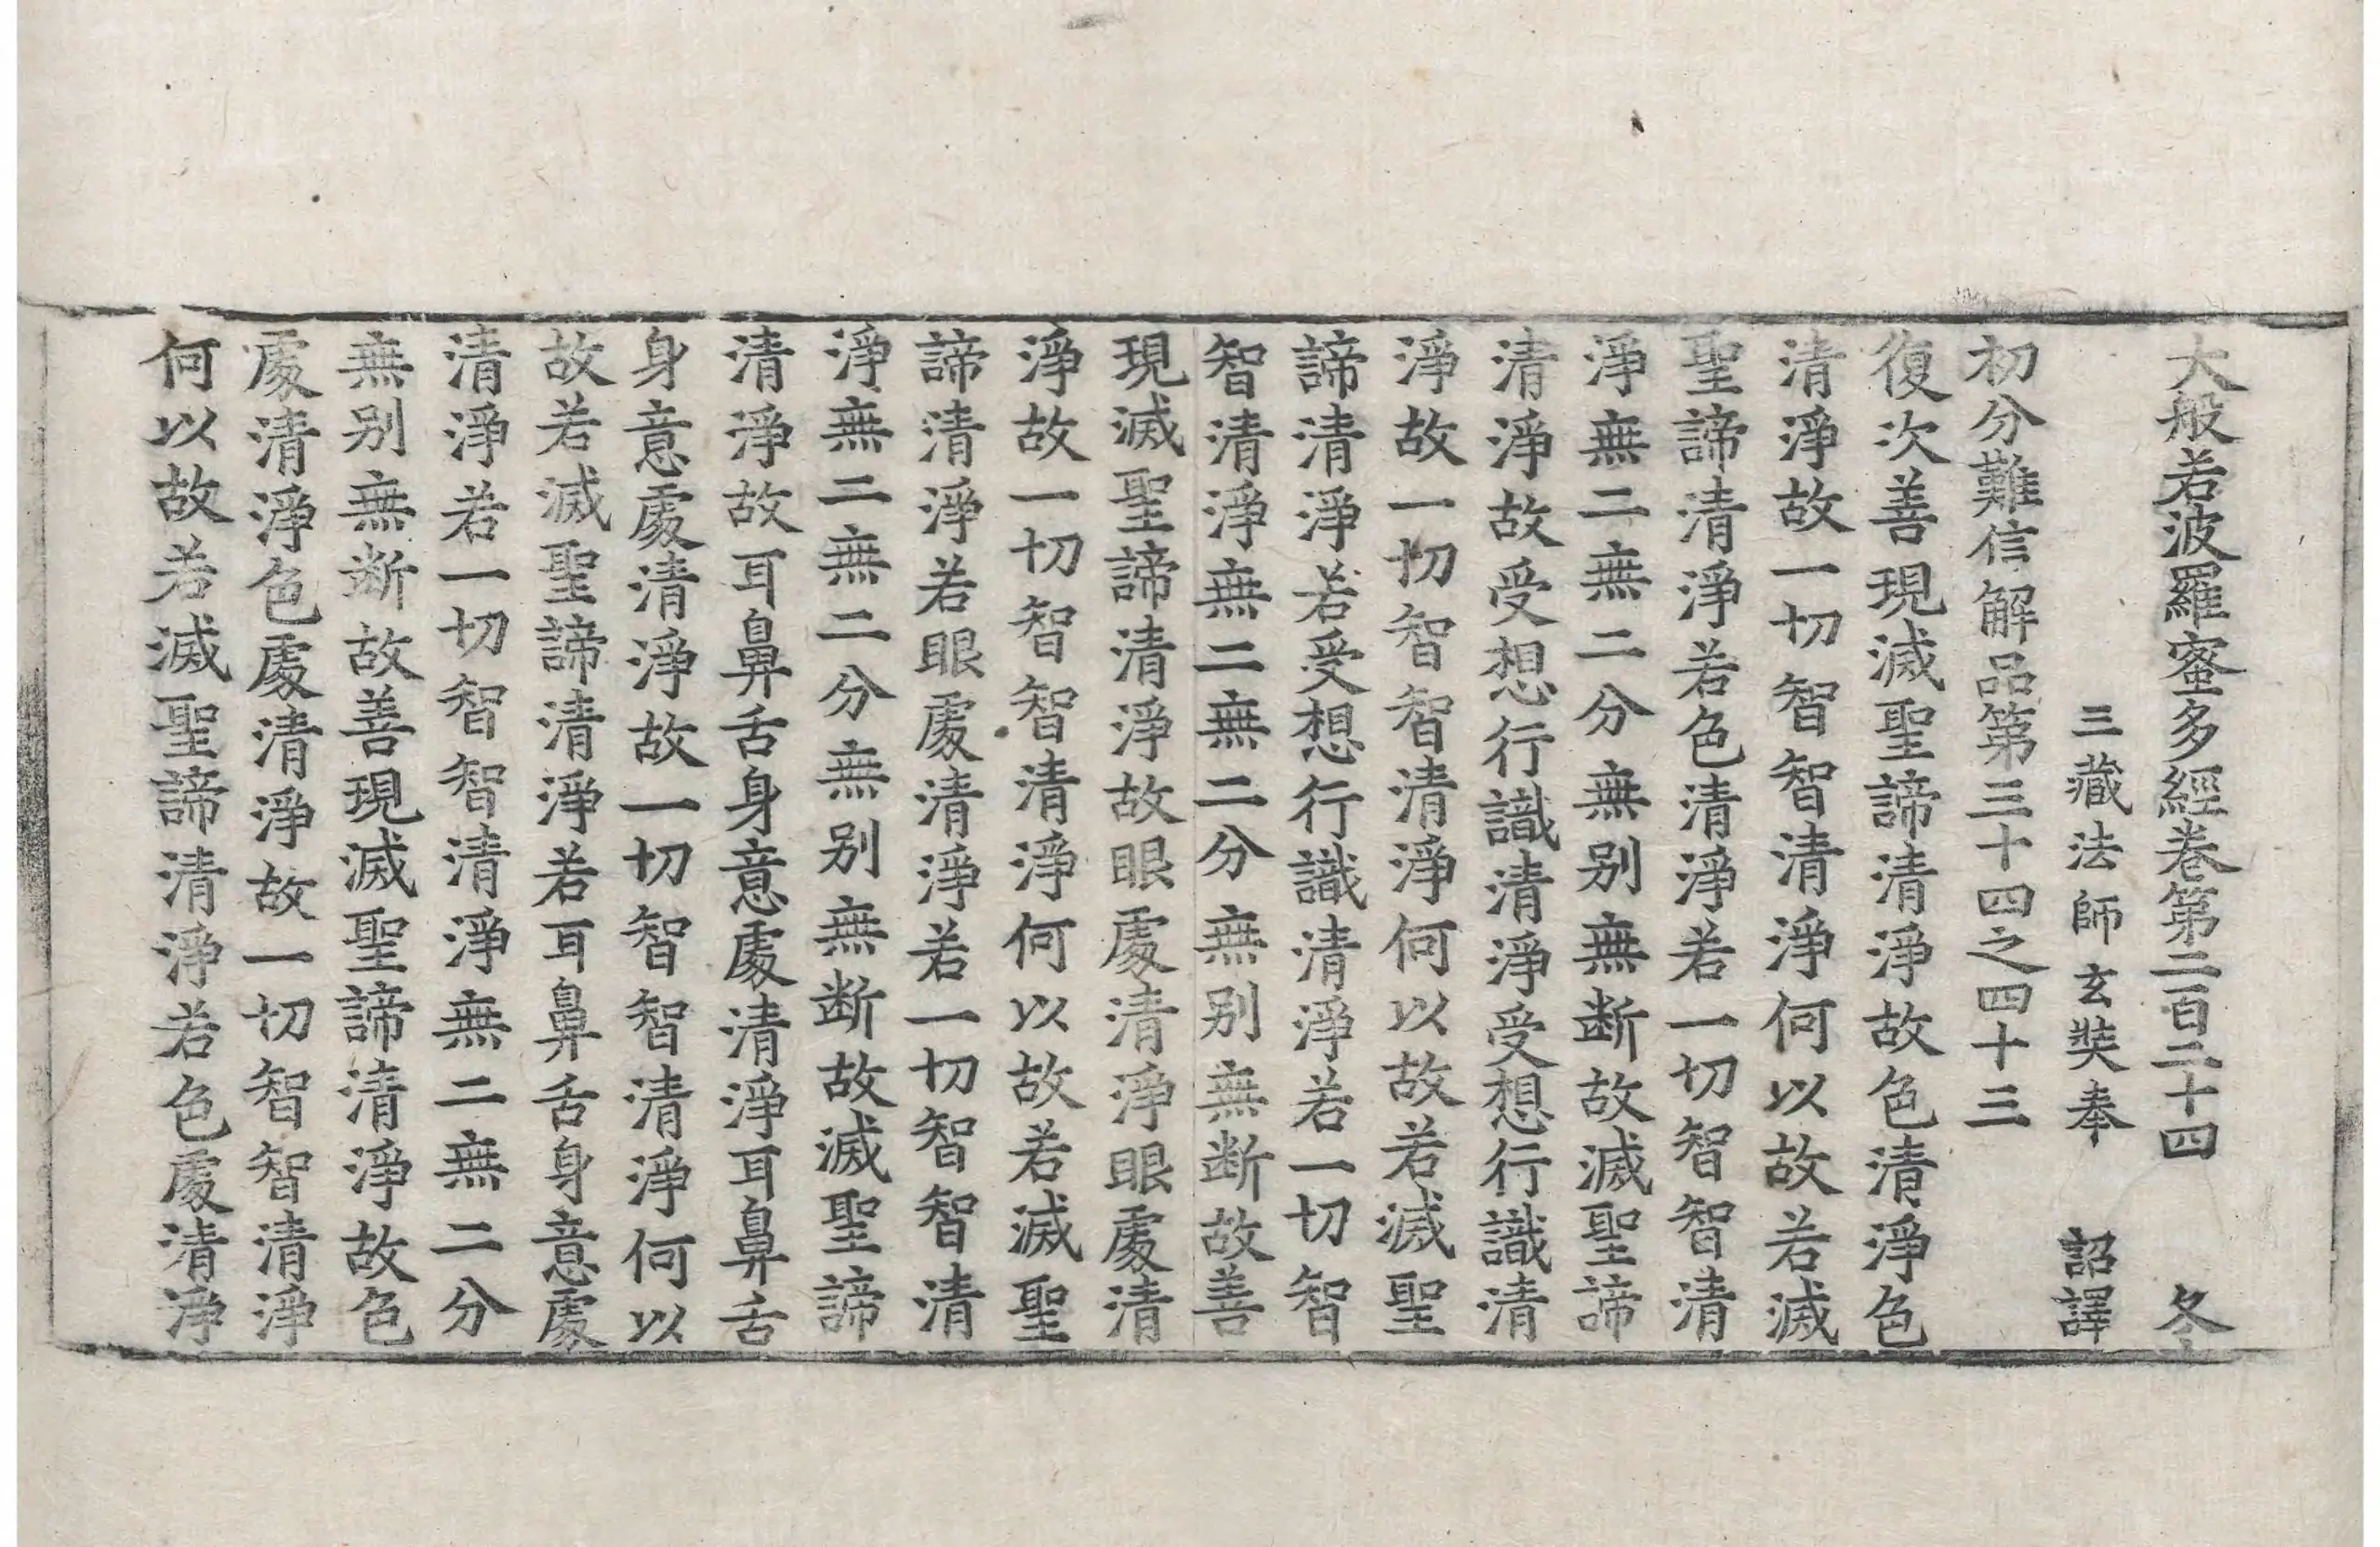 大般若波羅蜜多經卷第二百二十四 冬
三藏法師玄奘奉 詔譯
初分難信解品第三十四之四十三
復次善現滅聖諦清淨故色清淨色
清淨故一切智智清淨何以故若滅
聖諦清淨若色清淨若一切智智清
淨無二無二分無别無断故滅聖諦
清淨故受想行識清淨受想行識清
淨故一切智智清淨何以故若滅聖
諦清淨若受想行識清淨若一切智
智清淨無二無二分無别無断故善
現滅聖諦清淨故眼處清淨眼處清
淨故一切智智清淨何以故若滅聖
諦清淨若眼處清淨若一切智智清
淨無二無二分無别無断故滅聖諦
清淨故耳鼻舌身意處清淨耳鼻舌
身意處清淨故一切智智清淨何以
故若滅聖諦清淨若耳鼻舌身意處
清淨若一切智智清淨無二無二分
無别無断故善現滅聖諦清淨故色
處清淨色處清淨故一切智智清淨
何以故若滅聖諦清淨若色處清淨